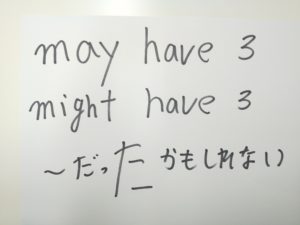 may have 3
might have 3
～だったかもしれない